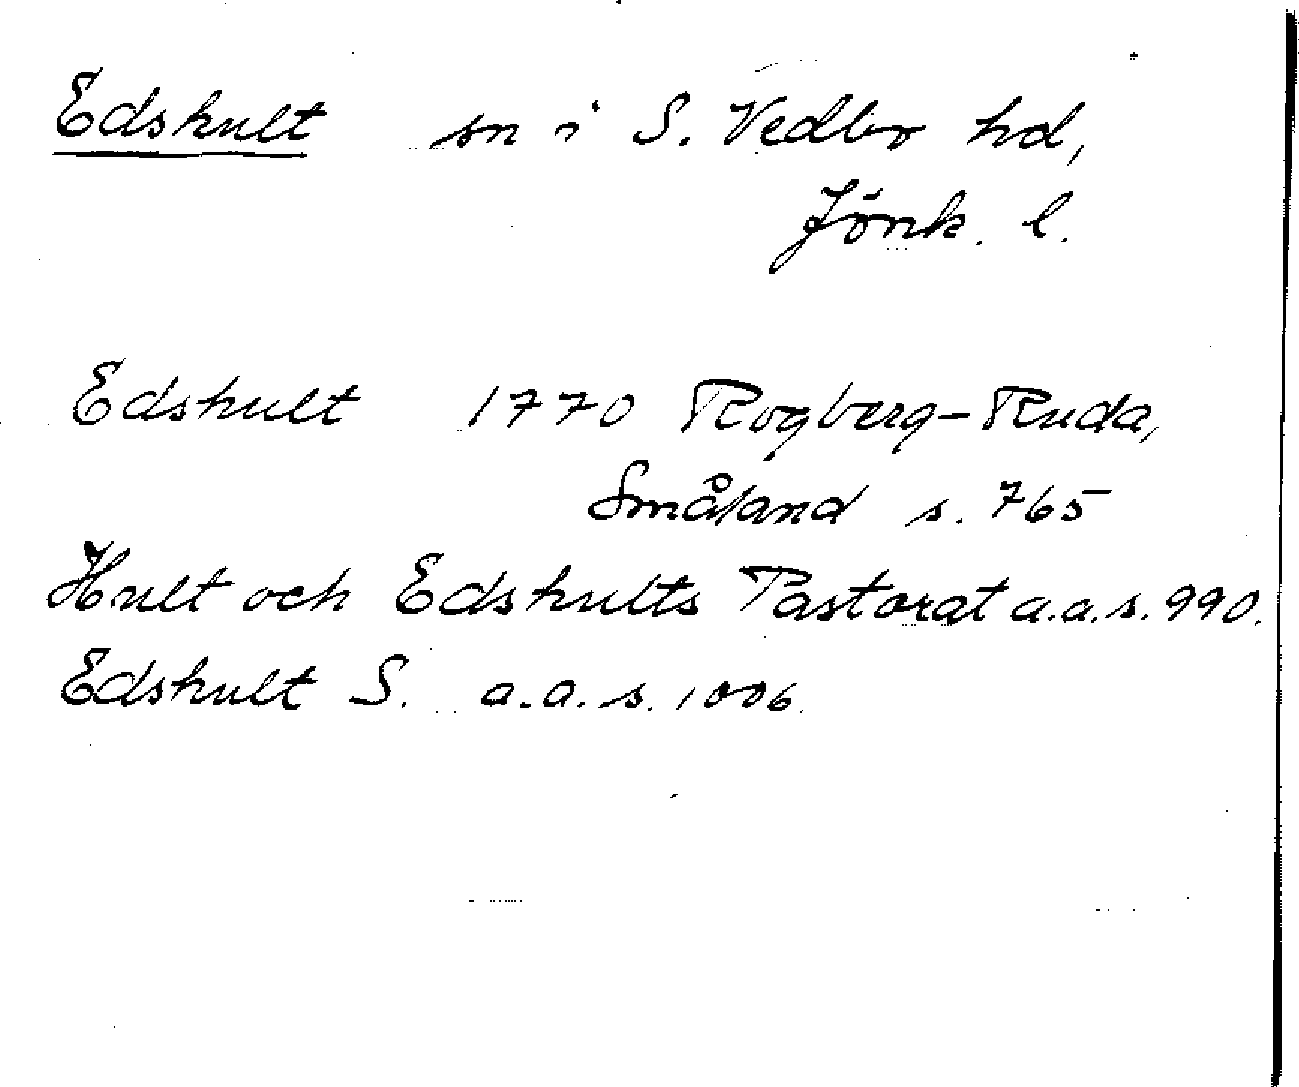 Edshult sn i S. Vedbo hd,
Jönk. l.
Edshult 1770 Rogberg-Ruda,
Småland s. 765
Hult och Edshults Pastorat a.a.s. 990.
Edshult S. a.a.s. 1006.